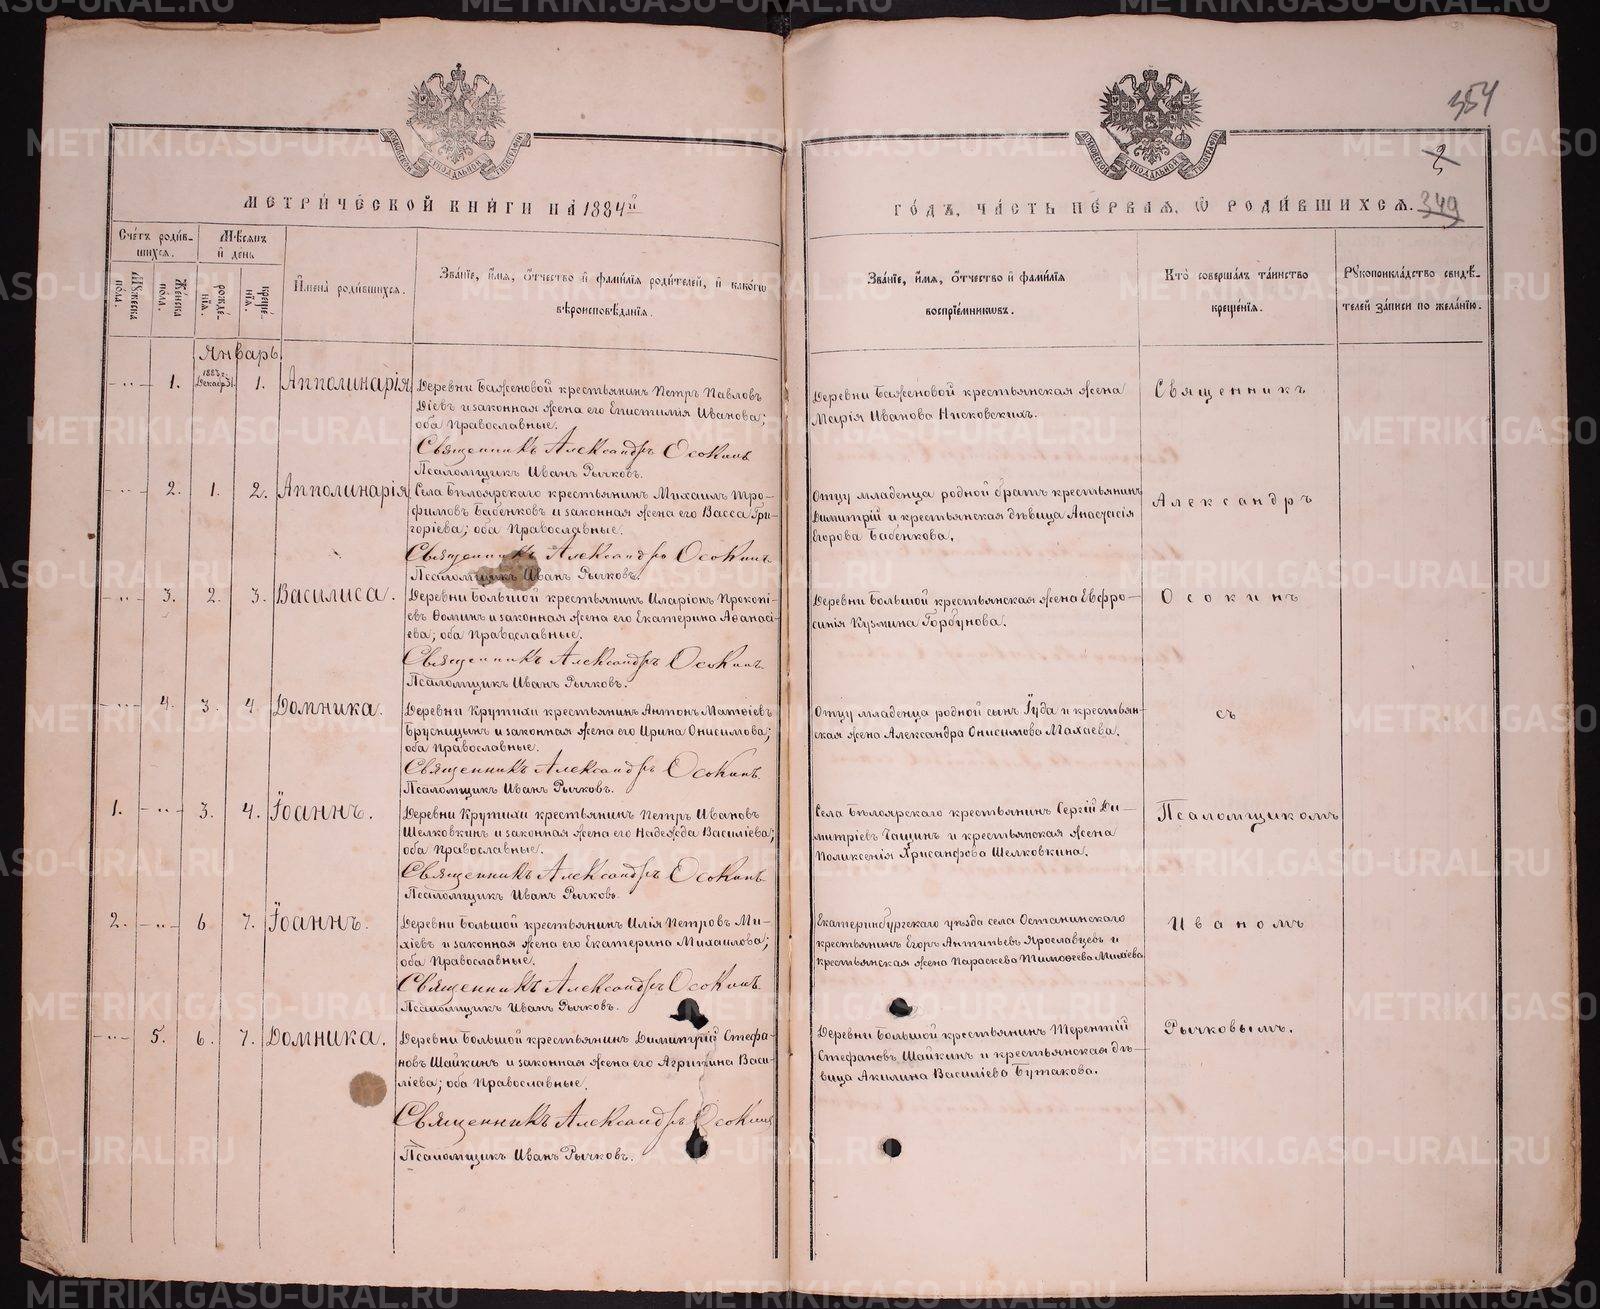 354
2
МЕТРИ́ЧЕСКОЙ КНИ́ГИ НА̀ 1884й
ГО́ДЪ, ЧА́СТЬ ПЕ́РВАЯ, Ѽ РОДИ́ВШИХСѦ. 349
Сче́тъ роди́в-
шихся.
Мѣсяцъ
и҆ де́нь
Мꙋжеска
пола.
Же́нска
пола.
рожде́-
нїѧ.
креще́-
нїѧ.
И҆мена̀ роди́вшихся.
Зва́нїе, и҆́мя, ѻ҆́тчество и҆ фами́лїя роди́телей, и҆ како́гѡ
вѣроисповѣ́данїя.
Зва́нїе, и҆́мя, ѻ҆́тчество и҆ фами́лїя
воспрїе́мникѡвъ.
Кто̀ соверша́лъ та́инство
креще́нїя.
Рꙋкоприкла́дство свидѣ́-
телей за́писи по жела́нїю.
Январь
1883 г.
Декабр. 31.
1.
1.
Апполинарія
Деревни Баженовой крестьянинъ Петръ Павловъ
Діевъ и законная жена его Епистимія Иванова;
оба православные.
Священникъ Александръ Осокинъ
Псаломщикъ Иванъ Рычковъ.
Деревни Баженовой крестьянская жена
Марія Иванова Нисковскихъ.
Священникъ
2.
1.
2.
Апполинарія
Села Бѣлоярскаго крестьянинъ Михаилъ Тро-
фимовъ Бабенковъ и законная жена его Васса Гри-
горіева; оба православные.
Священникъ Александръ Осокинъ
Псаломщикъ Иванъ Рычковъ.
Отцу младенца родной братъ крестьянинъ
Димитрій и крестьянская дѣвица Анастасія
Егорова Бабенкова.
Александръ
3.
2.
3.
Василиса.
Деревни Большой крестьянинъ Иларіонъ Прокопі-
евъ Ѳоминъ и законная жена его Екатерина Аѳанасі-
ева; оба православные.
Священникъ Александръ Осокинъ
Псаломщикъ Иванъ Рычковъ.
Деревни Большой крестьянская жена Евфро-
синія Кузмина Горбунова.
Осокинъ
4.
3.
4.
Домника.
Деревни Крутихи крестьянинъ Антонъ Матѳіевъ
Брусницынъ и законная жена его Ирина Онисимова;
оба православные.
Священникъ Александръ Осокинъ
Псаломщикъ Иванъ Рычковъ.
Отцу младенца родной сынъ Іуда и крестьян-
ская жена Александра Онисимова Махаева.
съ
1.
3.
4.
Іоаннъ.
Деревни Крутихи крестьянинъ Петръ Ивановъ
Шелковкинъ и законная жена его Надежда Василіева;
оба православные.
Священникъ Александръ Осокинъ
Псаломщикъ Иванъ Рычковъ.
Села Бѣлоярскаго крестьянинъ Сергій Ди-
митріевъ Чащинъ и крестьянская жена
Поликсенія Хрисанфова Шелковкина.
Псаломщикомъ
2.
6
7.
Іоаннъ.
Деревни Большой крестьянинъ Илія Петровъ Ми-
хіевъ и законная жена его Екатерина Михаилова;
оба православные.
Священникъ Александръ Осокинъ
Псаломщикъ Иванъ Рычковъ.
Екатеринбургскаго уѣзда села Останинскаго
крестьянинъ Егоръ Антипьевъ Ярославцевъ и
крестьянская жена Параскева Тимоѳеева Михіева
Иваномъ
5.
6.
7.
Домника.
Деревни Большой крестьянинъ Димитрій Стефа-
новъ Шайкинъ и законная жена его Агрипина Васи-
ліева; оба православные.
Священникъ Александръ Осокинъ
Псаломщикъ Иванъ Рычковъ.
Деревни Большой крестьянинъ Терентій
Стефановъ Шайкинъ и крестьянская дѣ-
вица Акилина Василіева Бутакова.
Рычковымъ.
METRIKI.GASO-URAL.RU